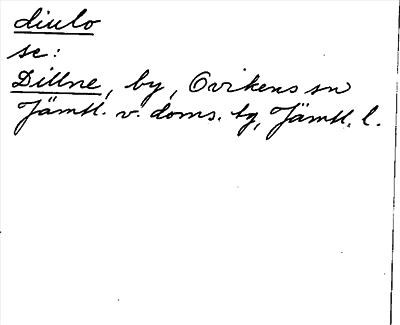 diulo
se:
Dillne, by, Ovikens sn
Jämtl. v. doms. tg, Jämtl. l.